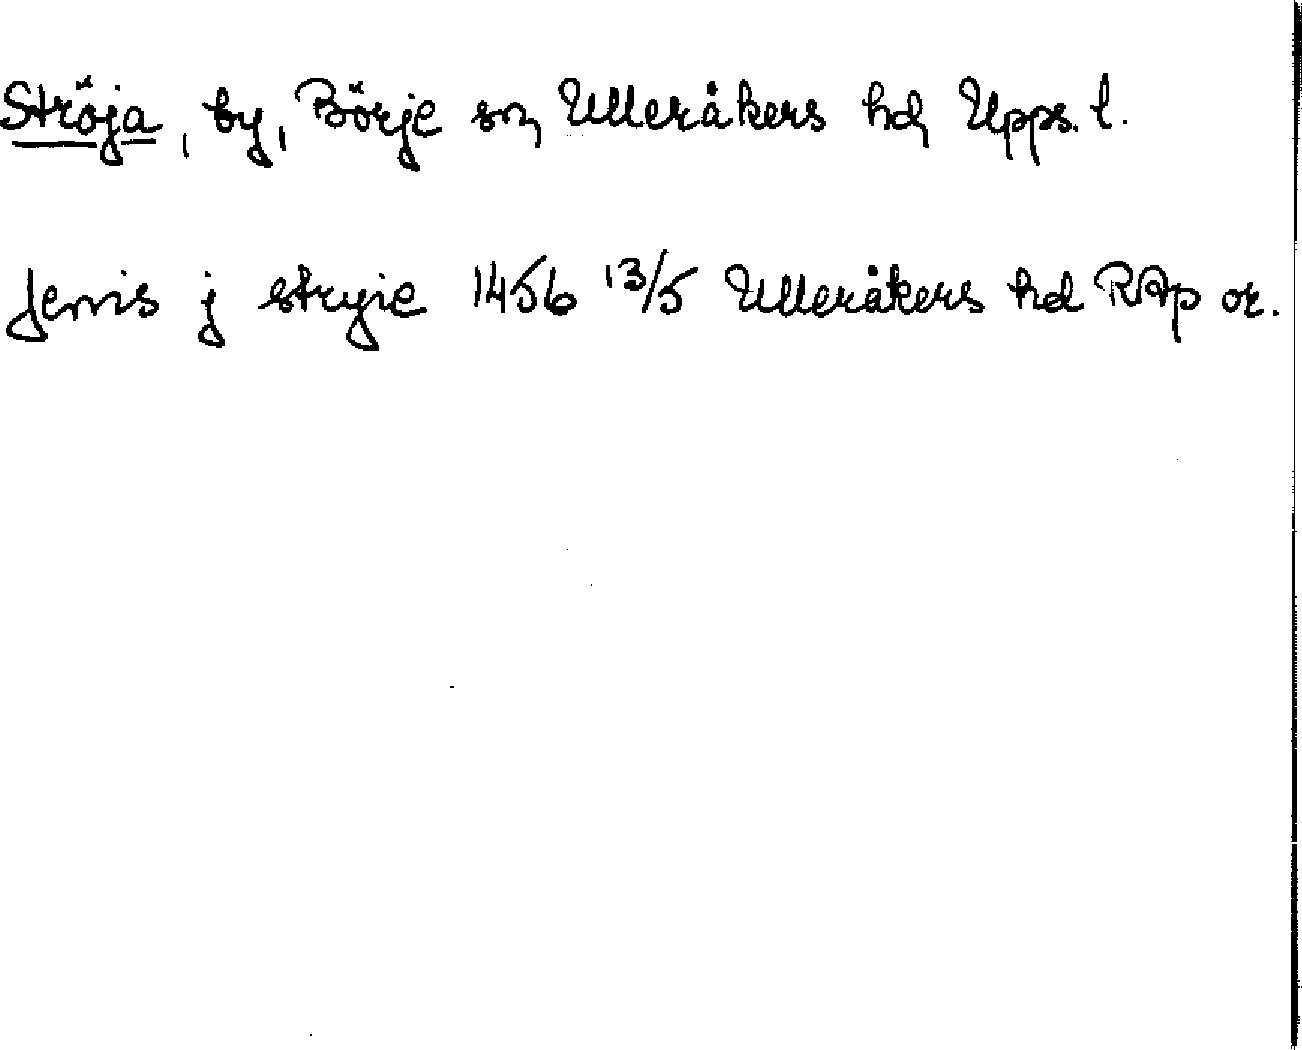 Ströja, by, Börje sn, Ulleråkers hd, Upps. l.
Jenis j stryie 1456 13/5 Ulleråkers hd RAp or.